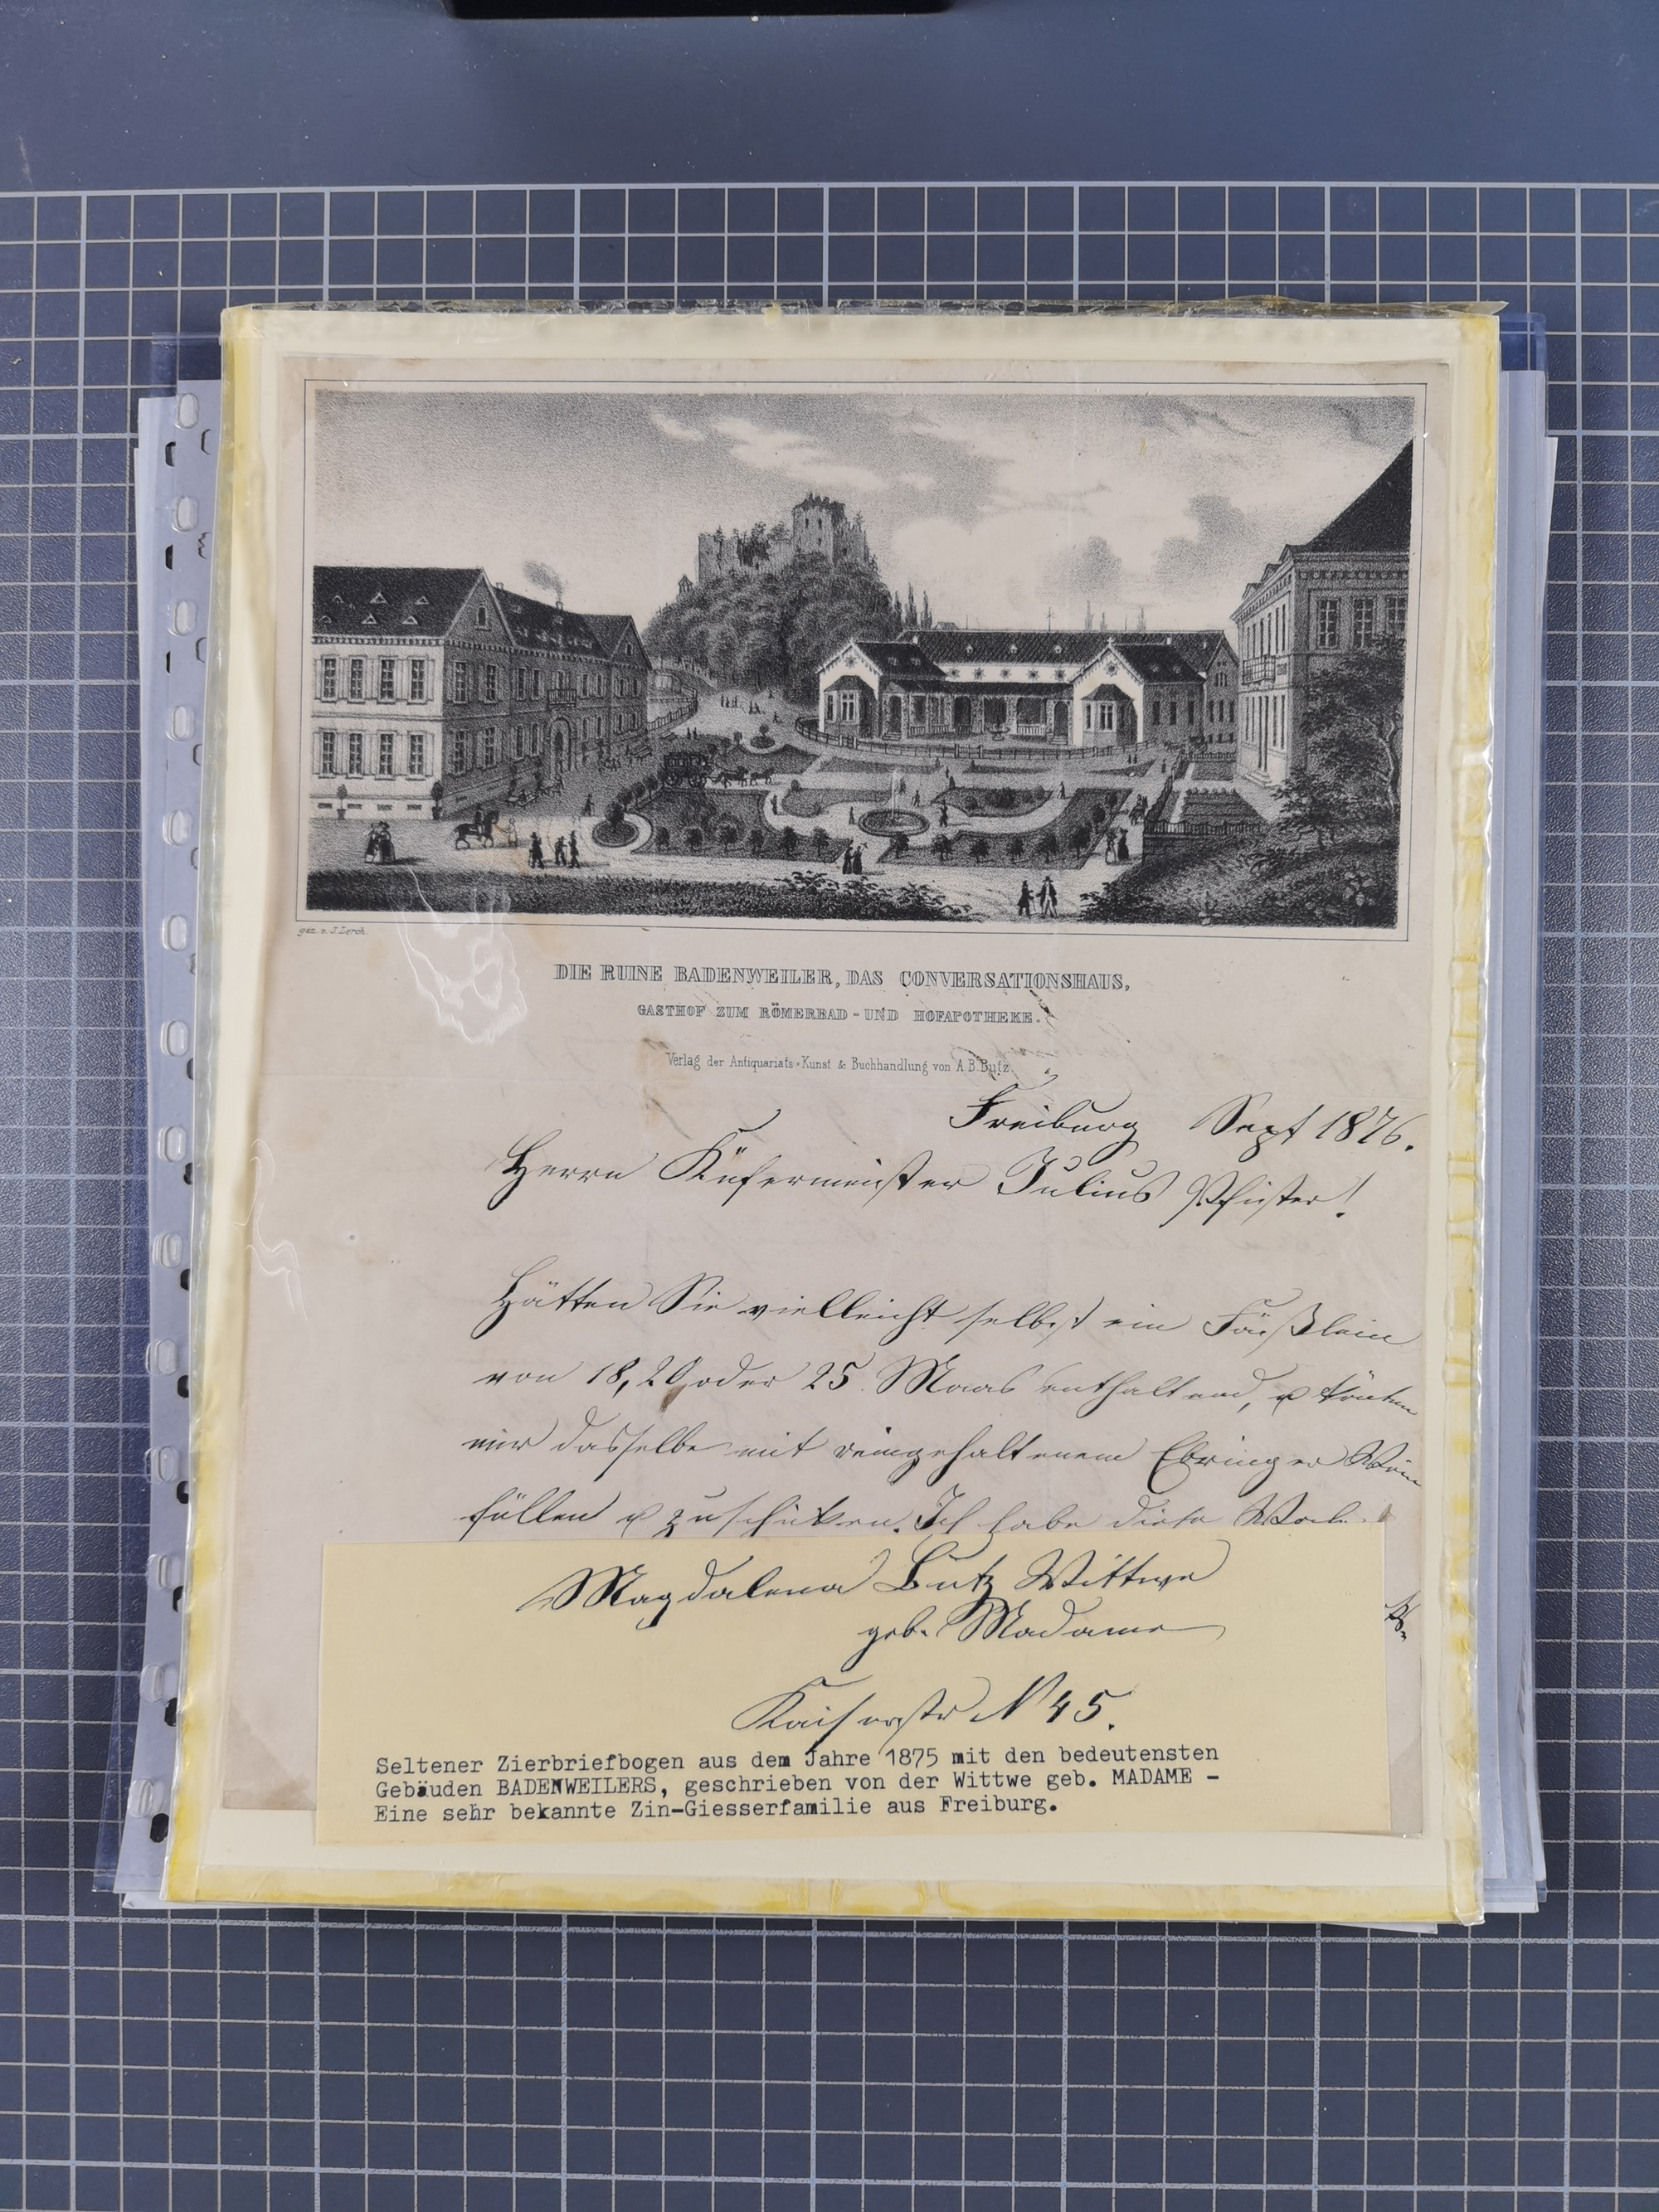 gez. v. J. Lerch.
DIE RUINE BADENWEILER, DAS CONVERSATIONSHAUS,
GASTHOF ZUM RÖMERBAD - UND HOFAPOTHEKE.
Verlag der Antiquariats-Kunst & Buchhandlung von A. B. Butz.
Freiburg Sept 1876.
Herrn Küfermeister Julius Pfister!
Hätten Sie vielleicht selbst ein Fäßlein
von 18, 20 oder 25 Maas enthaltend, u
mir dasselbe mit reingehaltenem Ebringer Wein
füllen u zuschicken. Ich habe diese
Magdalena Butz Wittwe
geb. Madame
Kaiserstr N 45.
Seltener Zierbriefbogen aus dem Jahre 1875 mit den bedeutensten
Gebäuden BADENWEILERS, geschrieben von der Wittwe geb. MADAME -
Eine sehr bekannte Zin-Giesserfamilie aus Freiburg.